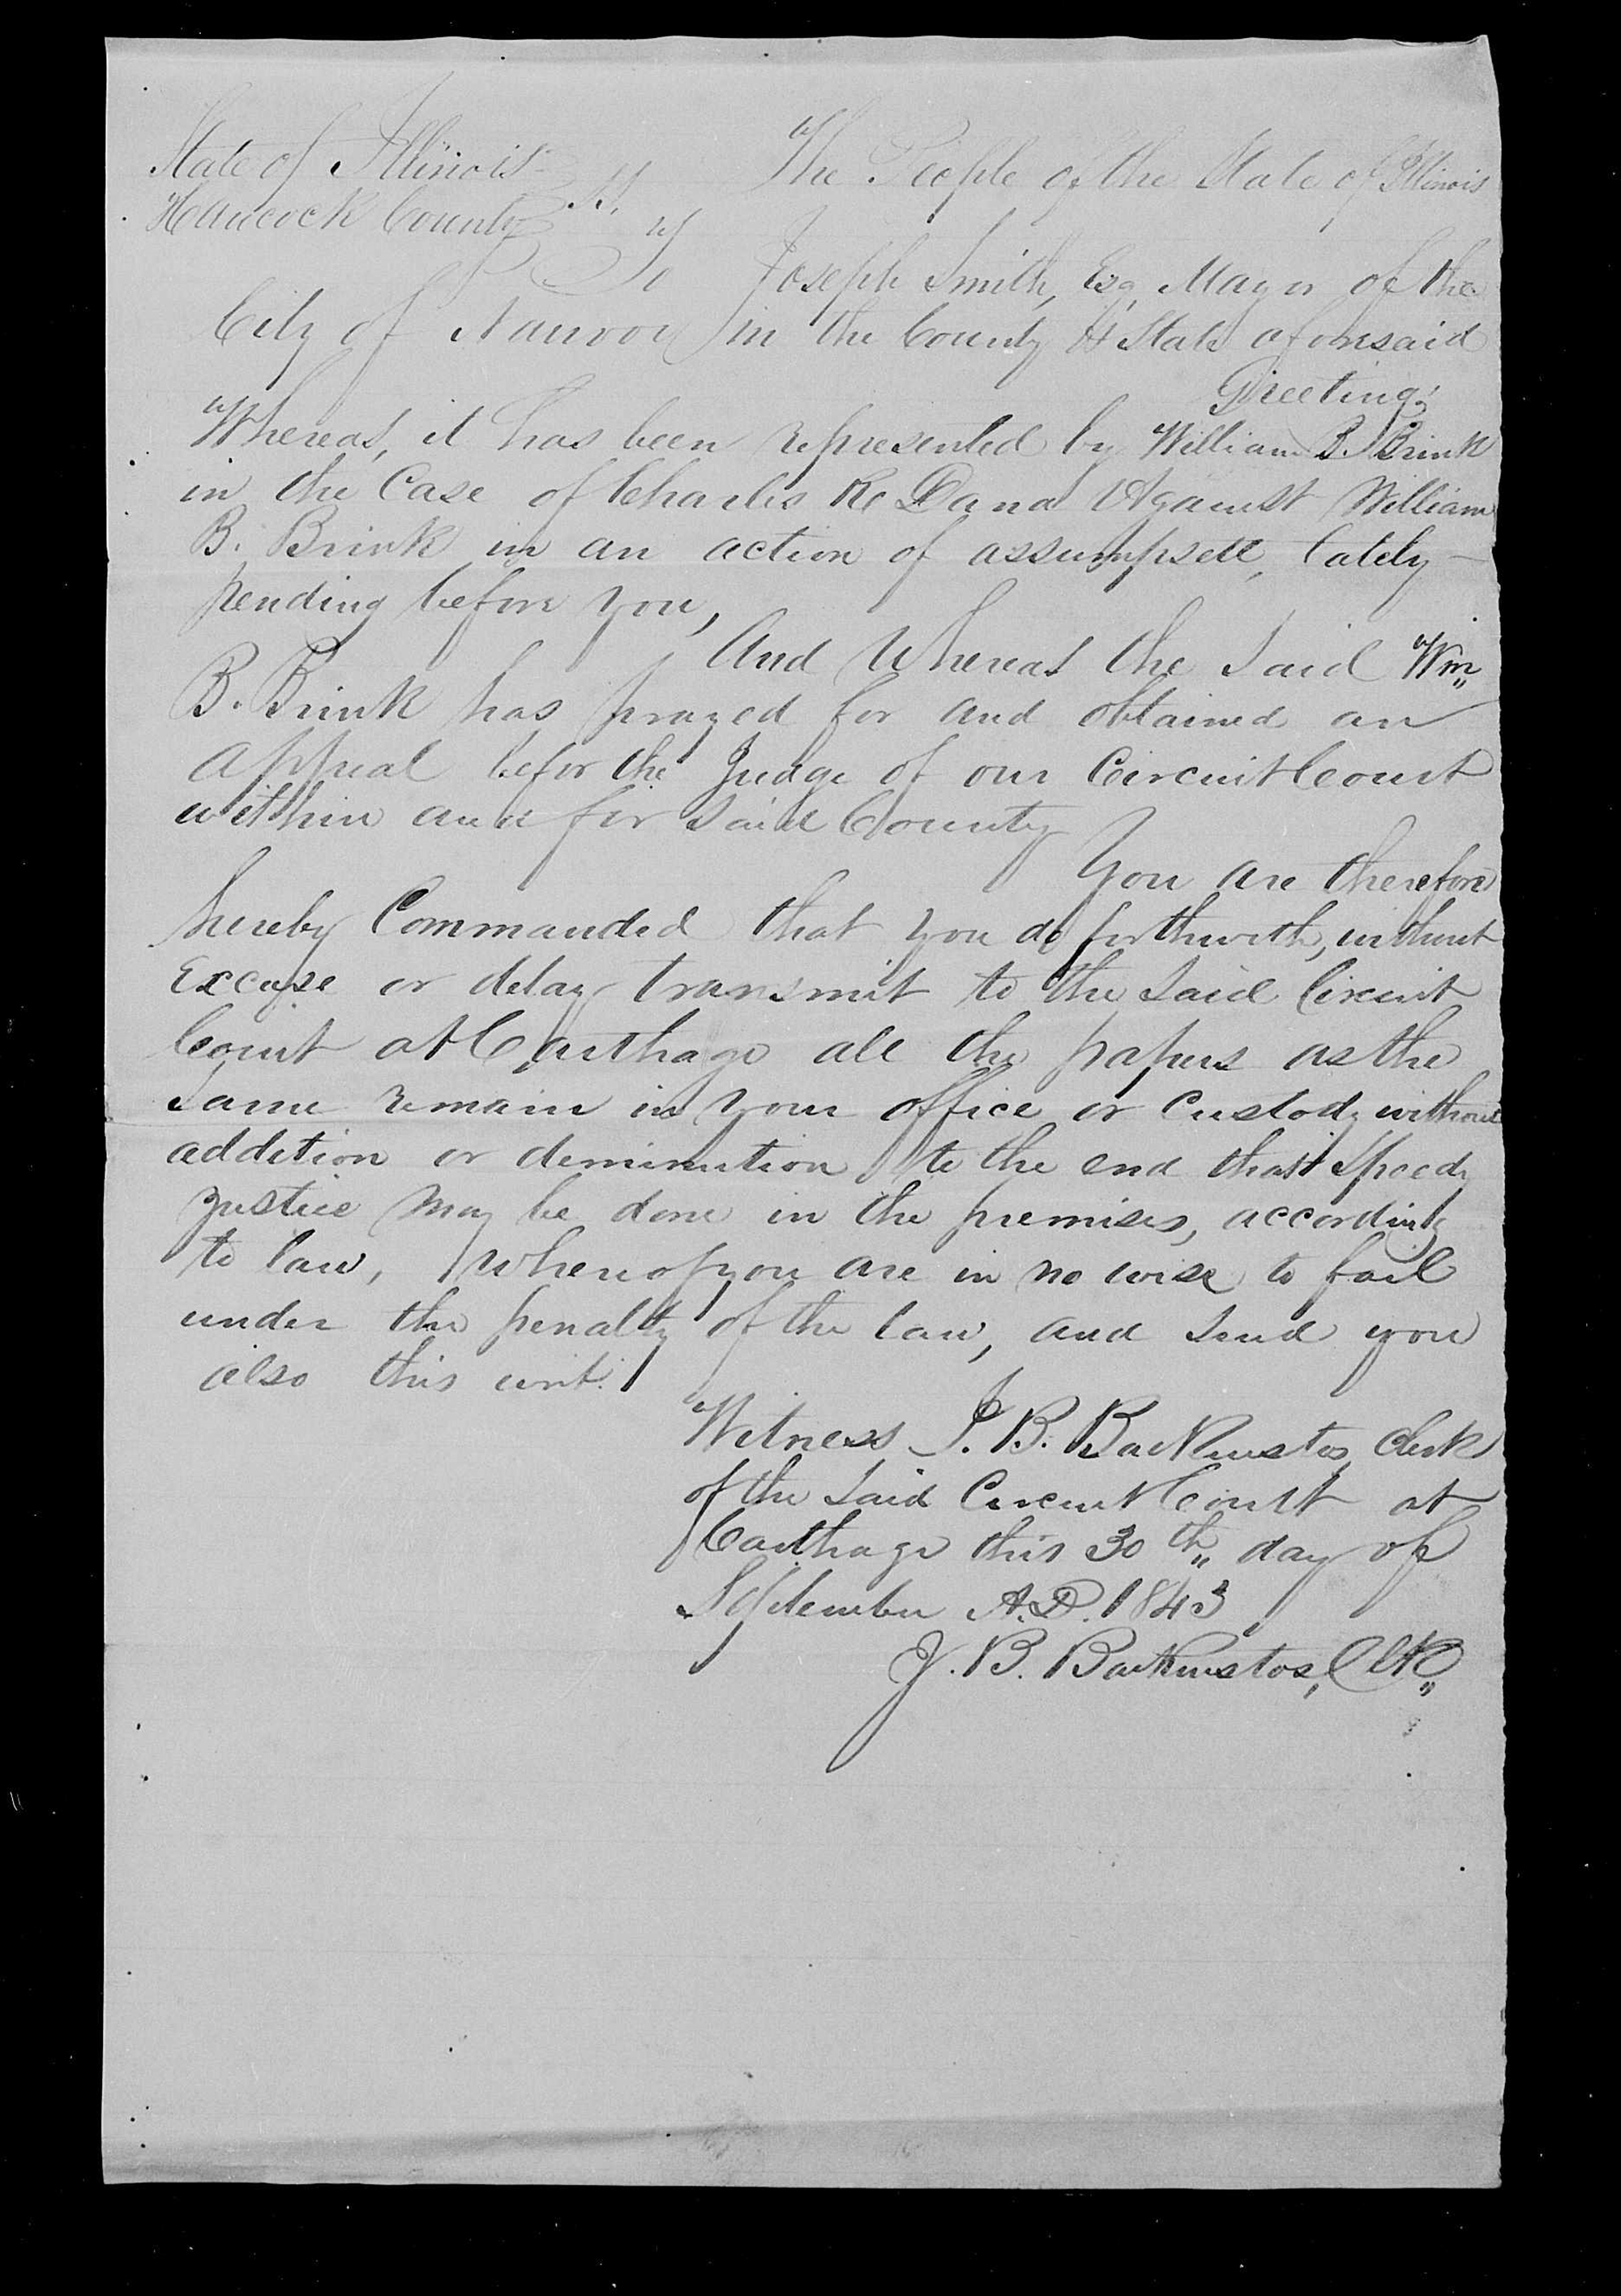 State of Illinois The People of the State of Illinois
Hancock County SS.
To Joseph Smith, Esq, Mayor of the
City of Nauvoo in the County & State aforesaid
Greeting;
Whereas, it has been represented by William B. Brink
in the Case of Charles R. Dana Against William
B. Brink in an action of assumpsit, lately
pending before you,
And Whereas the Said Wm
B. Brink has prayed for and obtained an
appeal befor the Judge of our Circuit Court
within and for Said County
You are therefore
hereby Commanded that you do forthwith, without
Excuse or delay transmit to the Said Circuit
Court at Carthage all the papers as the
Same remain in your office or Custody without
addition or diminution to the end that Speedy
justice may be done in the premises, according
to law, whereof you are in no wise to fail
under the penalty of the law, and Send you
also this writ.
Witness J. B. Backenstos, Clerk
of the Said Circuit Court at
Carthage this 30th day of
September A.D. 1843
J. B. Backenstos, Clk